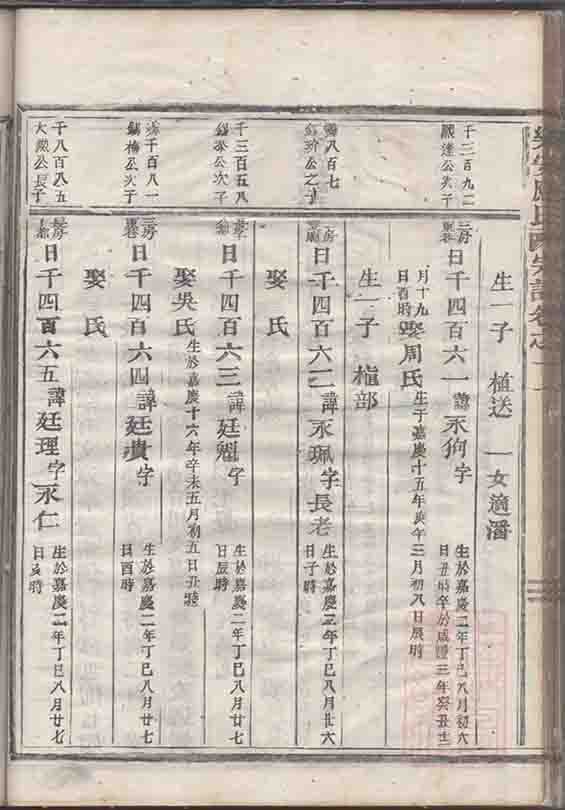 生一子 植送 一女適潘
千三百九二
公次子
三房
日千四百六一諱永狗字
生於嘉慶二年丁巳八月初六
日丑時卒於咸豐三年癸丑十二
月十九
日酉時
娶周氏
生于嘉慶十五年庚午三月初八日辰時
生一子 植部
八百七
公之子
日千四百六二諱永珮字長老
生於嘉慶二年丁巳八月廿六
日子時
娶氏
千三百五八
公次子
日千四百六三諱廷字
生於嘉慶二年丁巳八月廿七
日辰時
娶吳氏
生於嘉慶十六年辛未五月初五日丑時
千百八一
公次子
三房
日千四百六四諱廷貴字
生於嘉慶二年丁巳八月廿七
日酉時
娶氏
千八百八五
大公長子
長房
日千四百六五諱廷理字永仁
生於嘉慶二年丁巳八月廿七
日亥時